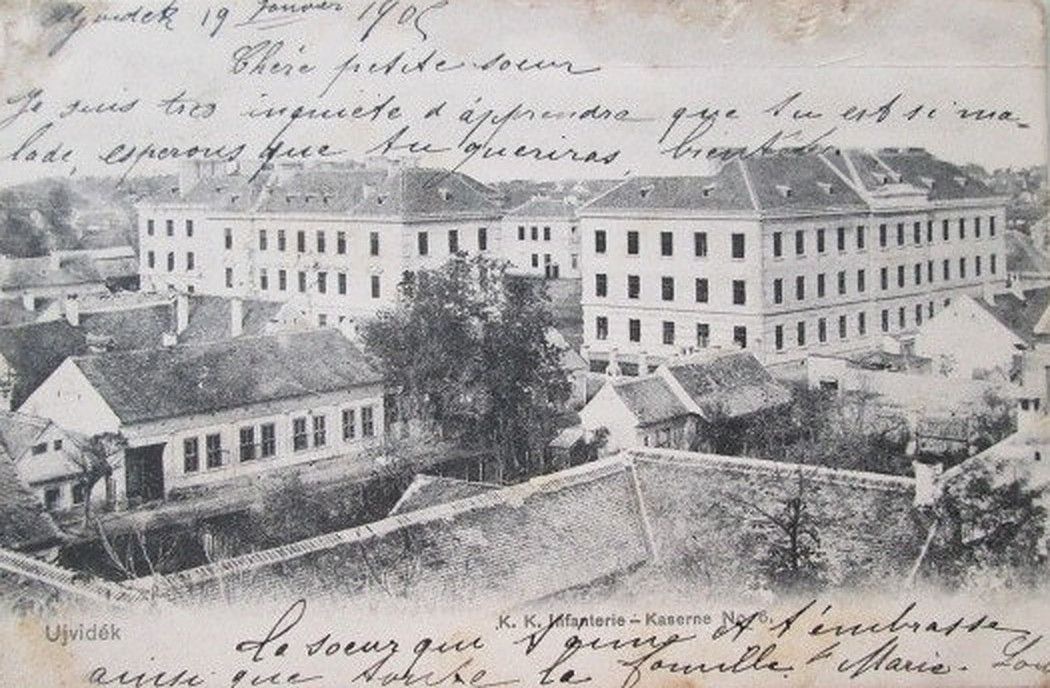 Ujvidek 19 Janvier 1905
Chére petite soeur
Je suis tres inquiéte d'apprendre que tu est si ma-
lade, esperons que tu gueriras bientôt.
Ujvidék
K. K. Infanterie – Kaserne No. 6.
La soeur qui t'aime et t'embrasse
ainsi que toute la famille. Marie.